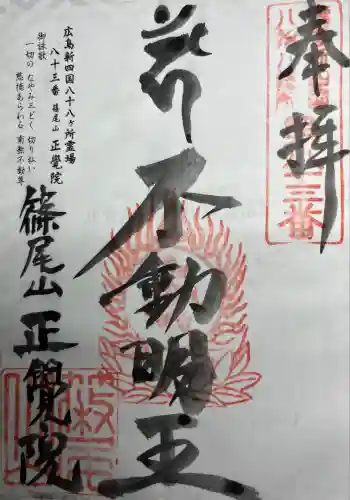 奉拝
不動明王
広島新四国八十八ヶ所霊場
八十三番 篠尾山 正覺院
御詠歌
一切の なやみ三どく 切り払い
慈悲あらわる 南無不動尊
篠尾山 正覺院